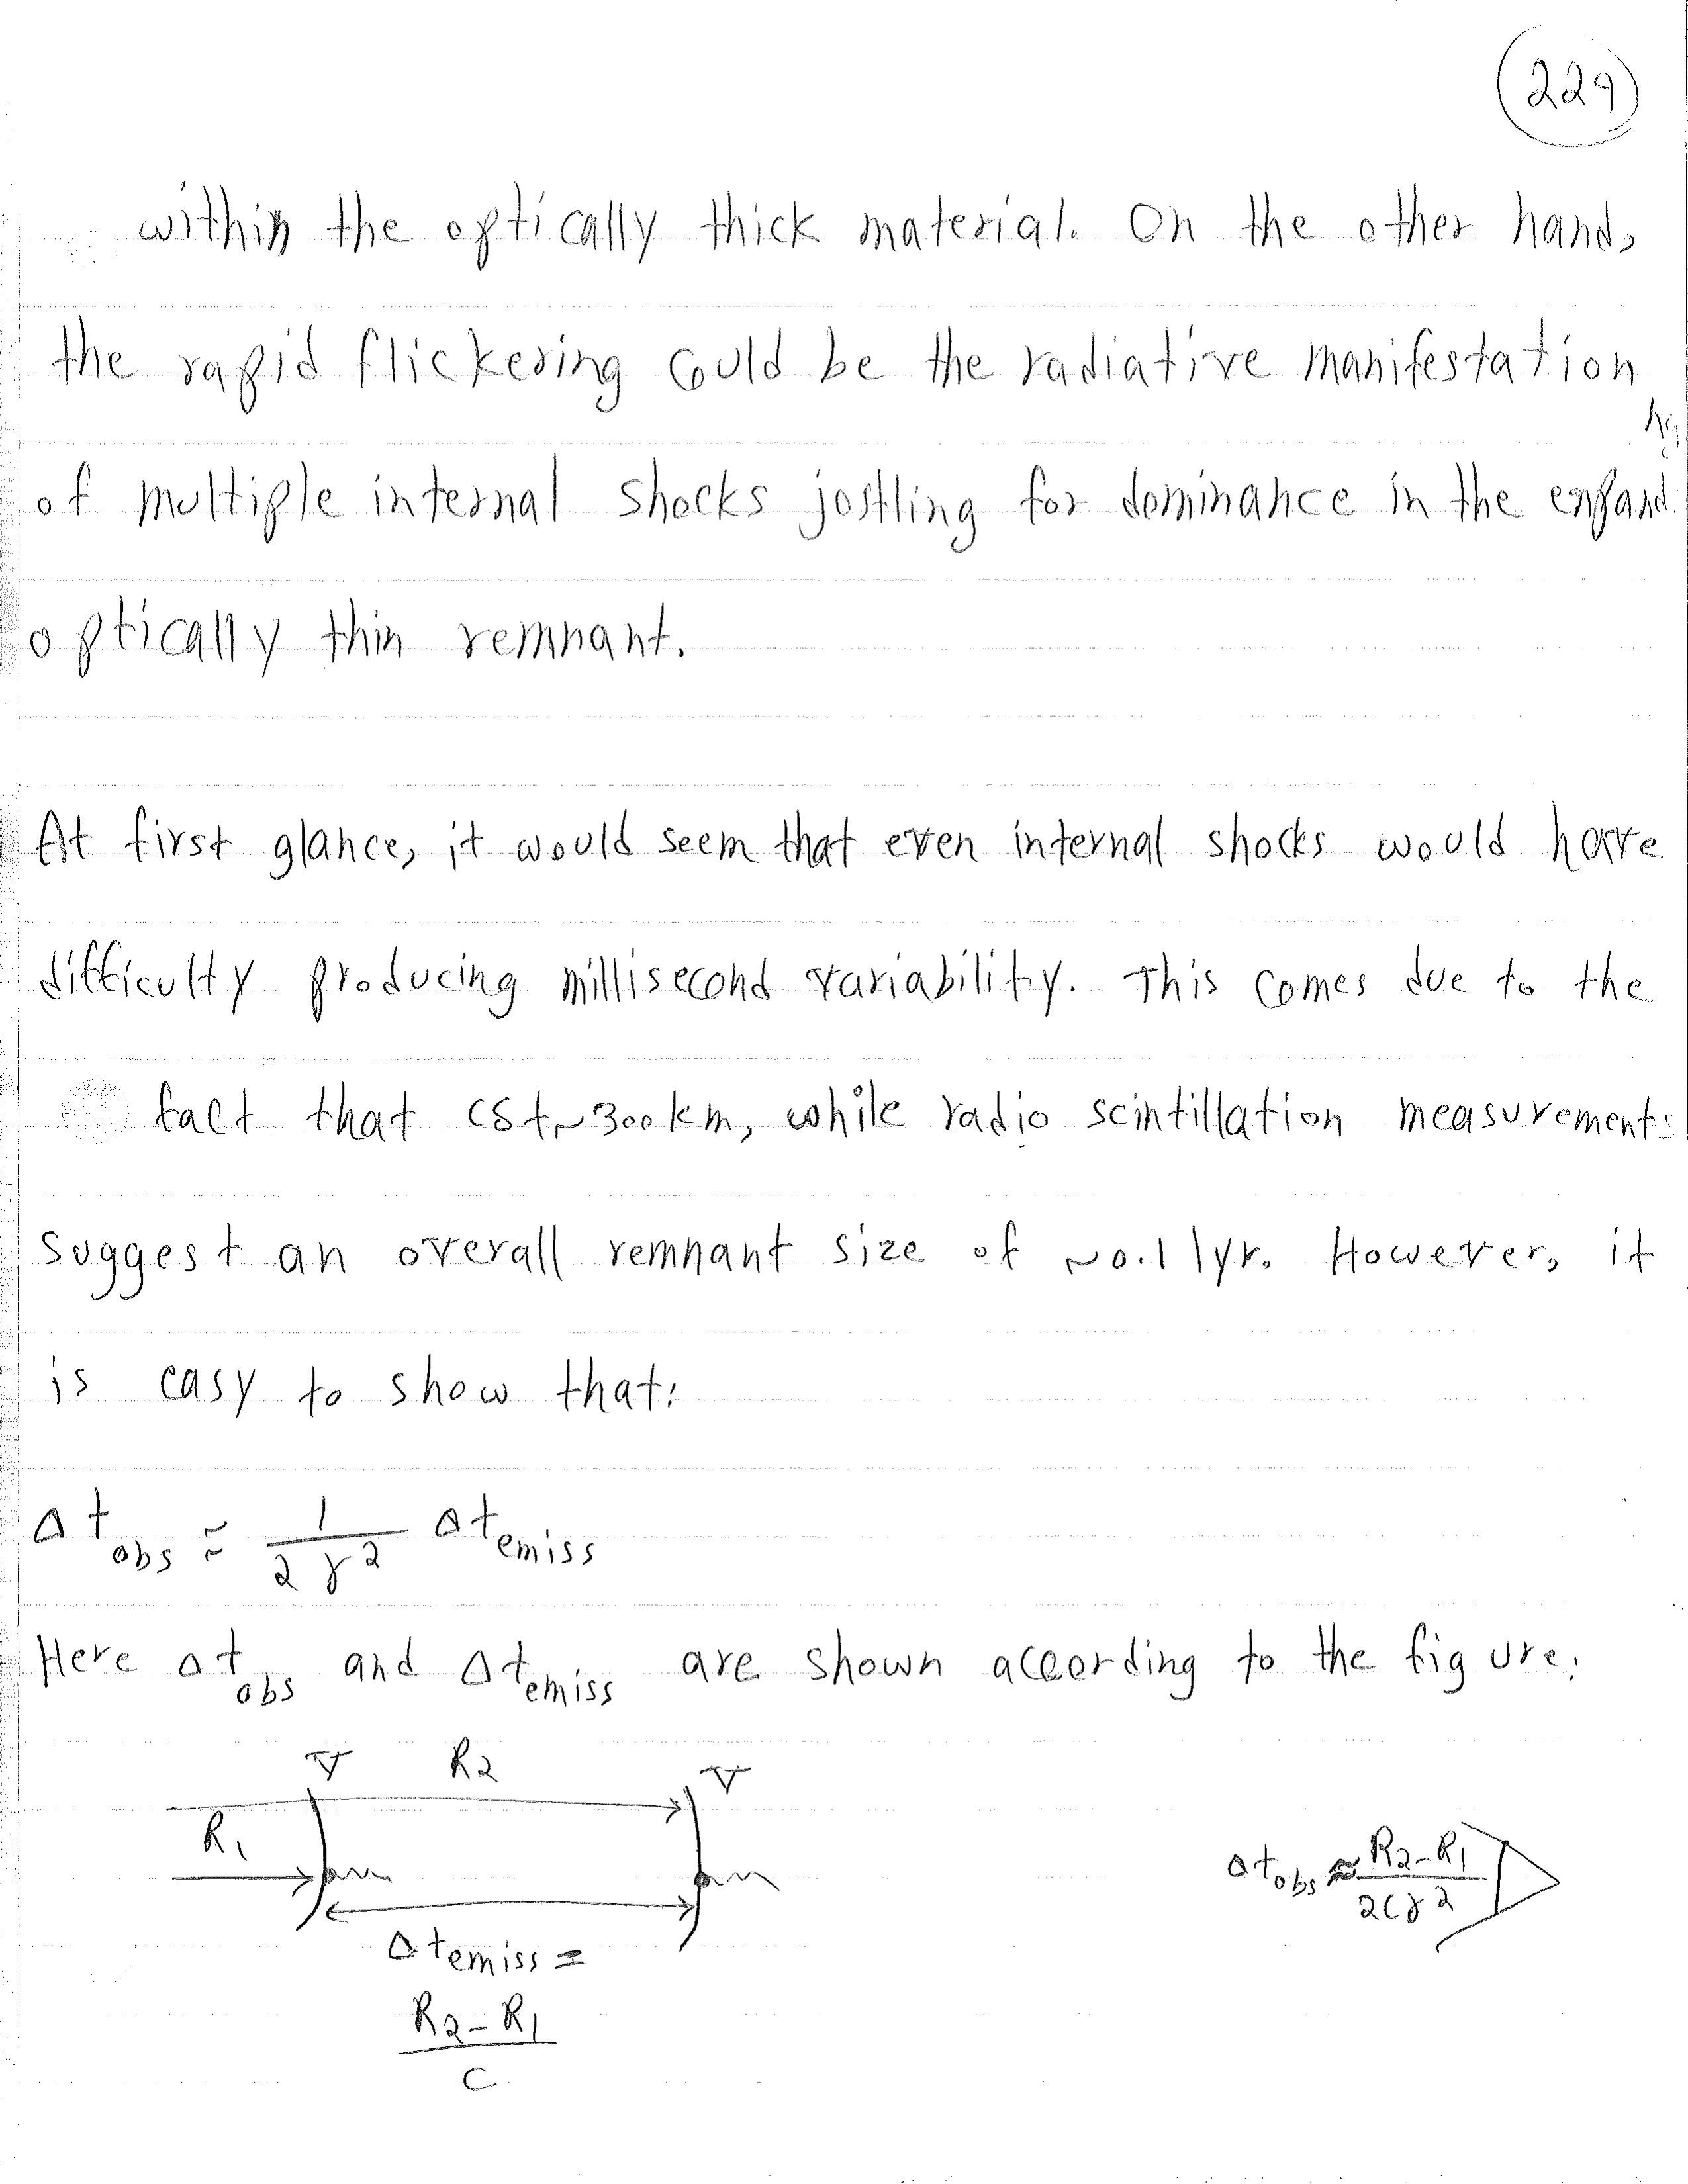 229
within the optically thick material. On the other hand,
the rapid flickering could be the radiative manifestation
of multiple internal shocks jostling for dominance in the expanding
optically thin remnant.
At first glance, it would seem that even internal shocks would have
difficulty producing millisecond variability. This comes due to the
fact that cδt~300km, while radio scintillation measurements
suggest an overall remnant size of ~0.1 lyr. However, it
is easy to show that:
Δt_obs ≈ 1/(2γ²) Δt_emiss
Here Δt_obs and Δt_emiss are shown according to the figure:
V R2 V
R1
Δt_obs ≈ (R2-R1)/(2cγ²)
Δt_emiss =
(R2-R1)/c